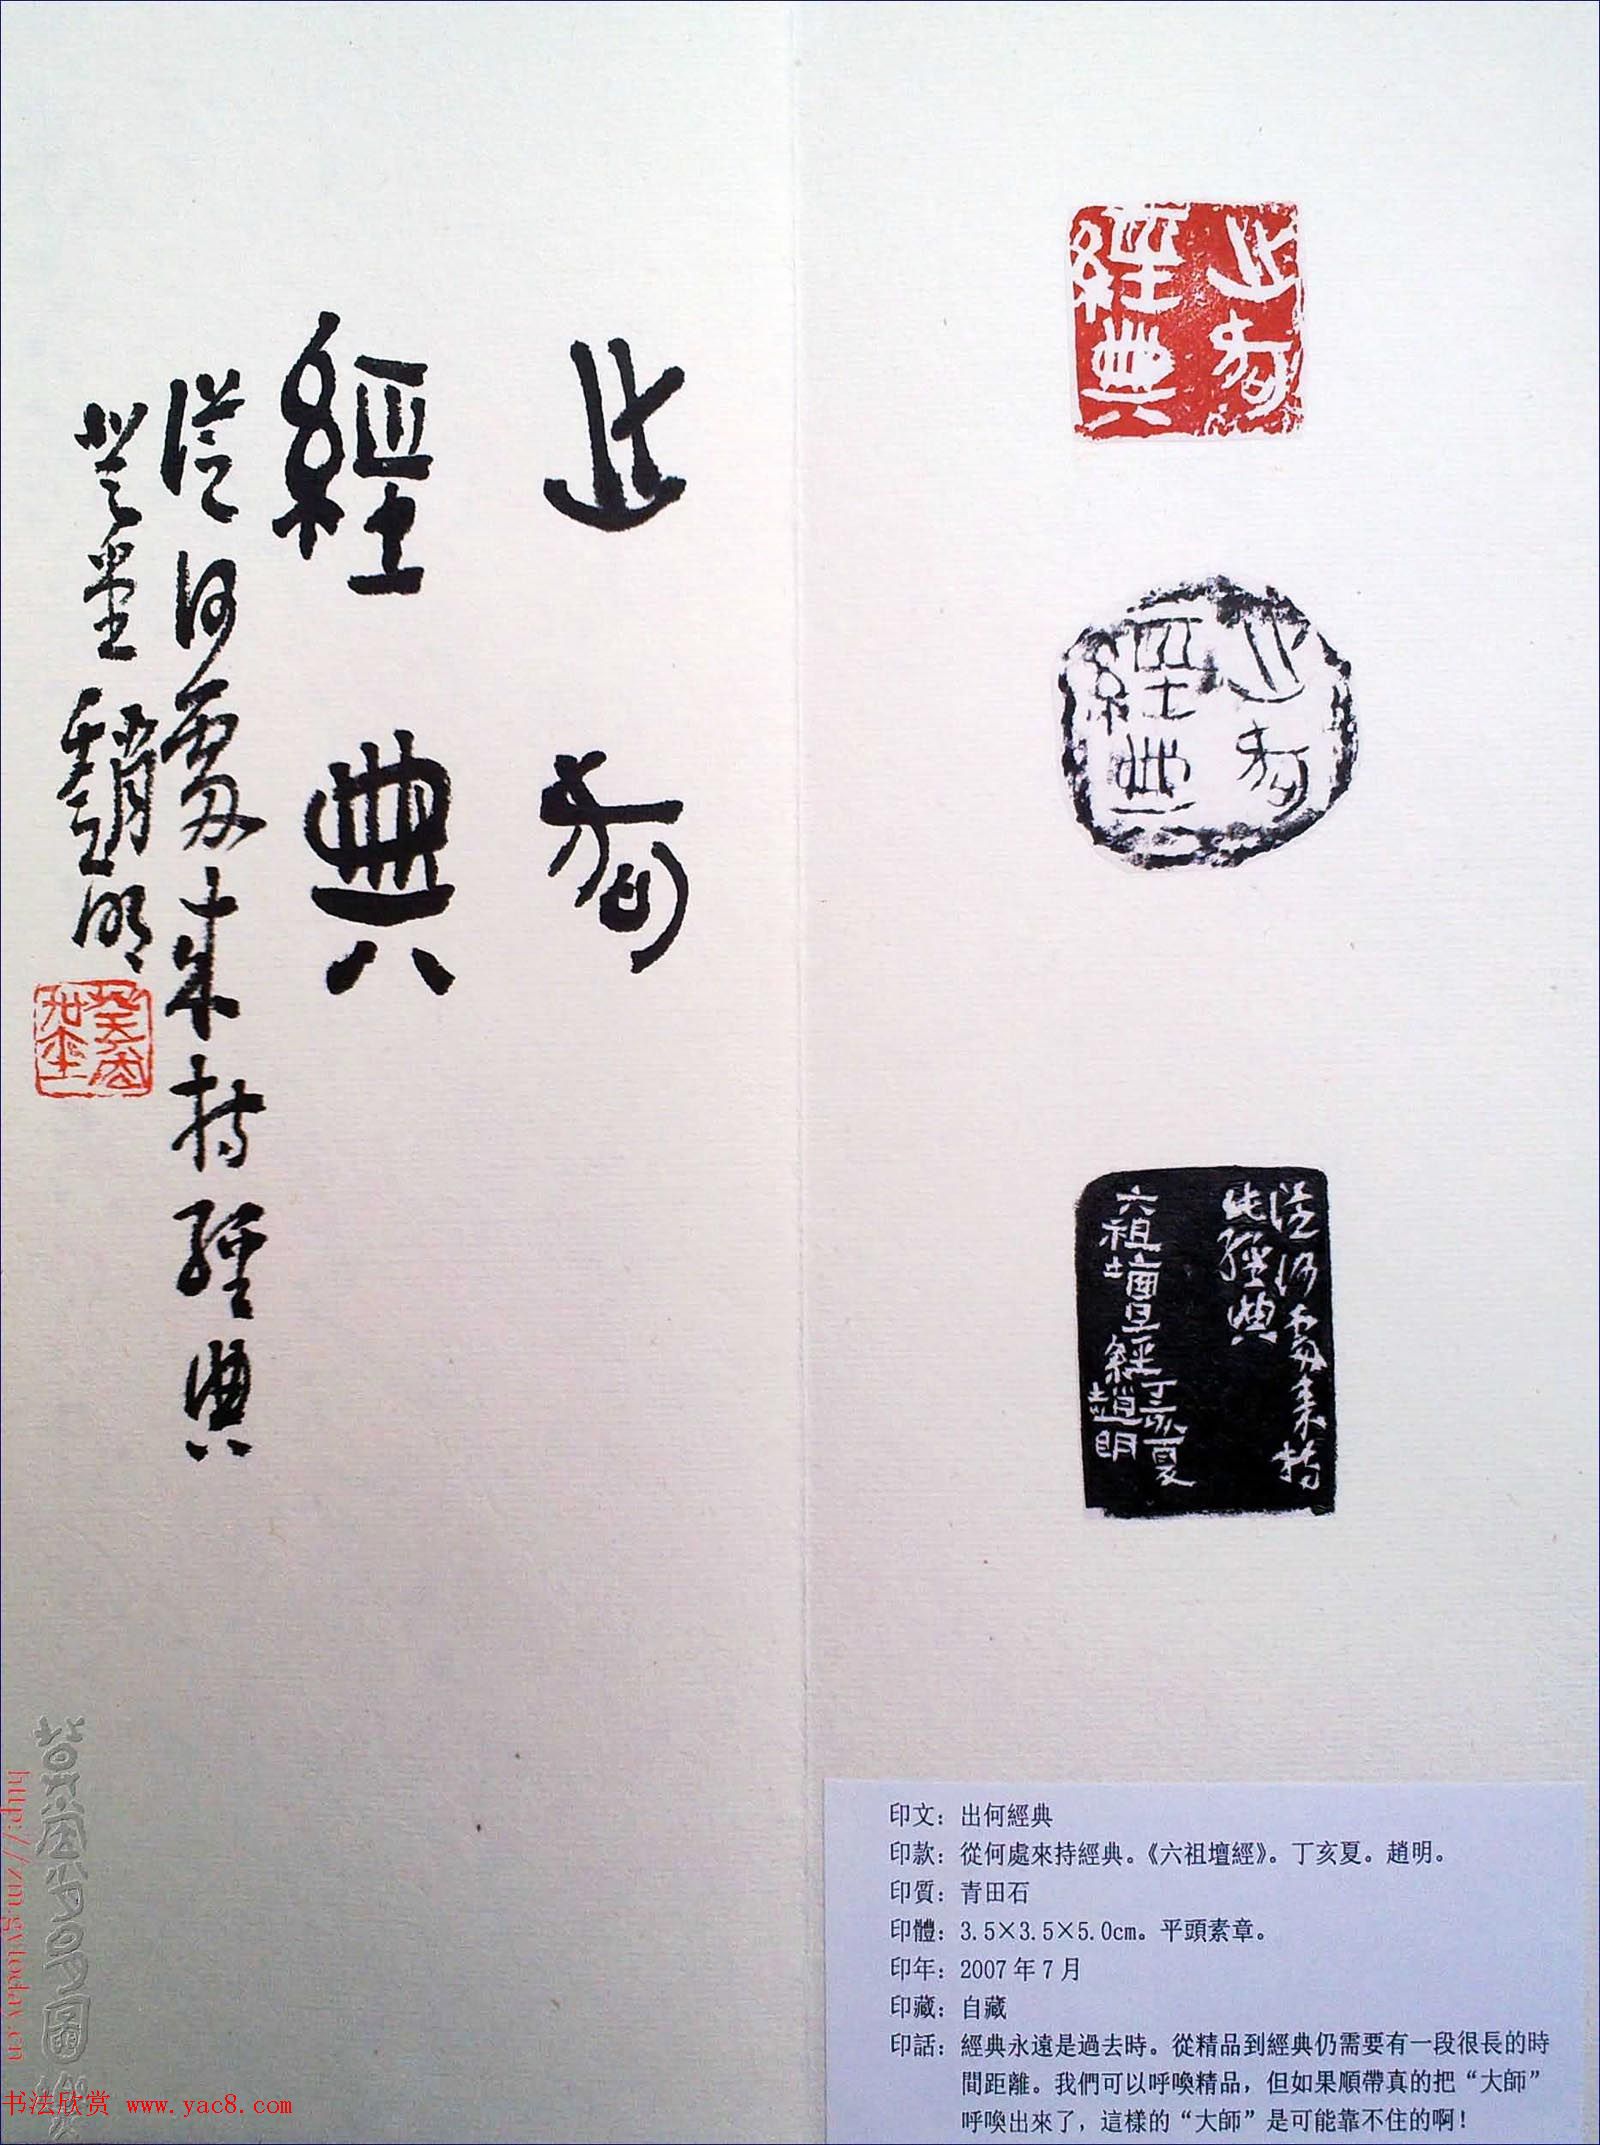 出何
經典
從何處來持經典
登堂趙明
出何
經典
出何
經典
從何處來持
此經典
六祖壇經
丁亥夏
趙明
印文：出何經典
印款：從何處來持經典。《六祖壇經》。丁亥夏。趙明。
印質：青田石
印體：3.5×3.5×5.0cm。平頭素章。
印年：2007年7月
印藏：自藏
印話：經典永遠是過去時。從精品到經典仍需要有一段很長的時
間距離。我們可以呼喚精品，但如果順帶真的把“大師”
呼喚出來了，這樣的“大師”是可能靠不住的啊！
http://zm.gytoday.cn
书法欣赏 www.yac8.com